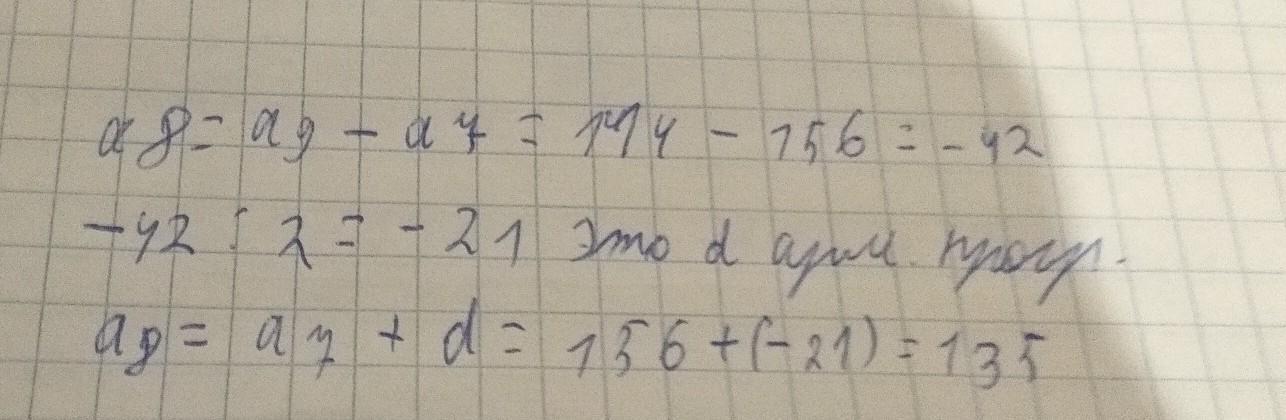 a8 = a9 - a7 = 114 - 156 = -42
-42 : 2 = -21 это d арифм. прогр.
a8 = a7 + d = 156 + (-21) = 135